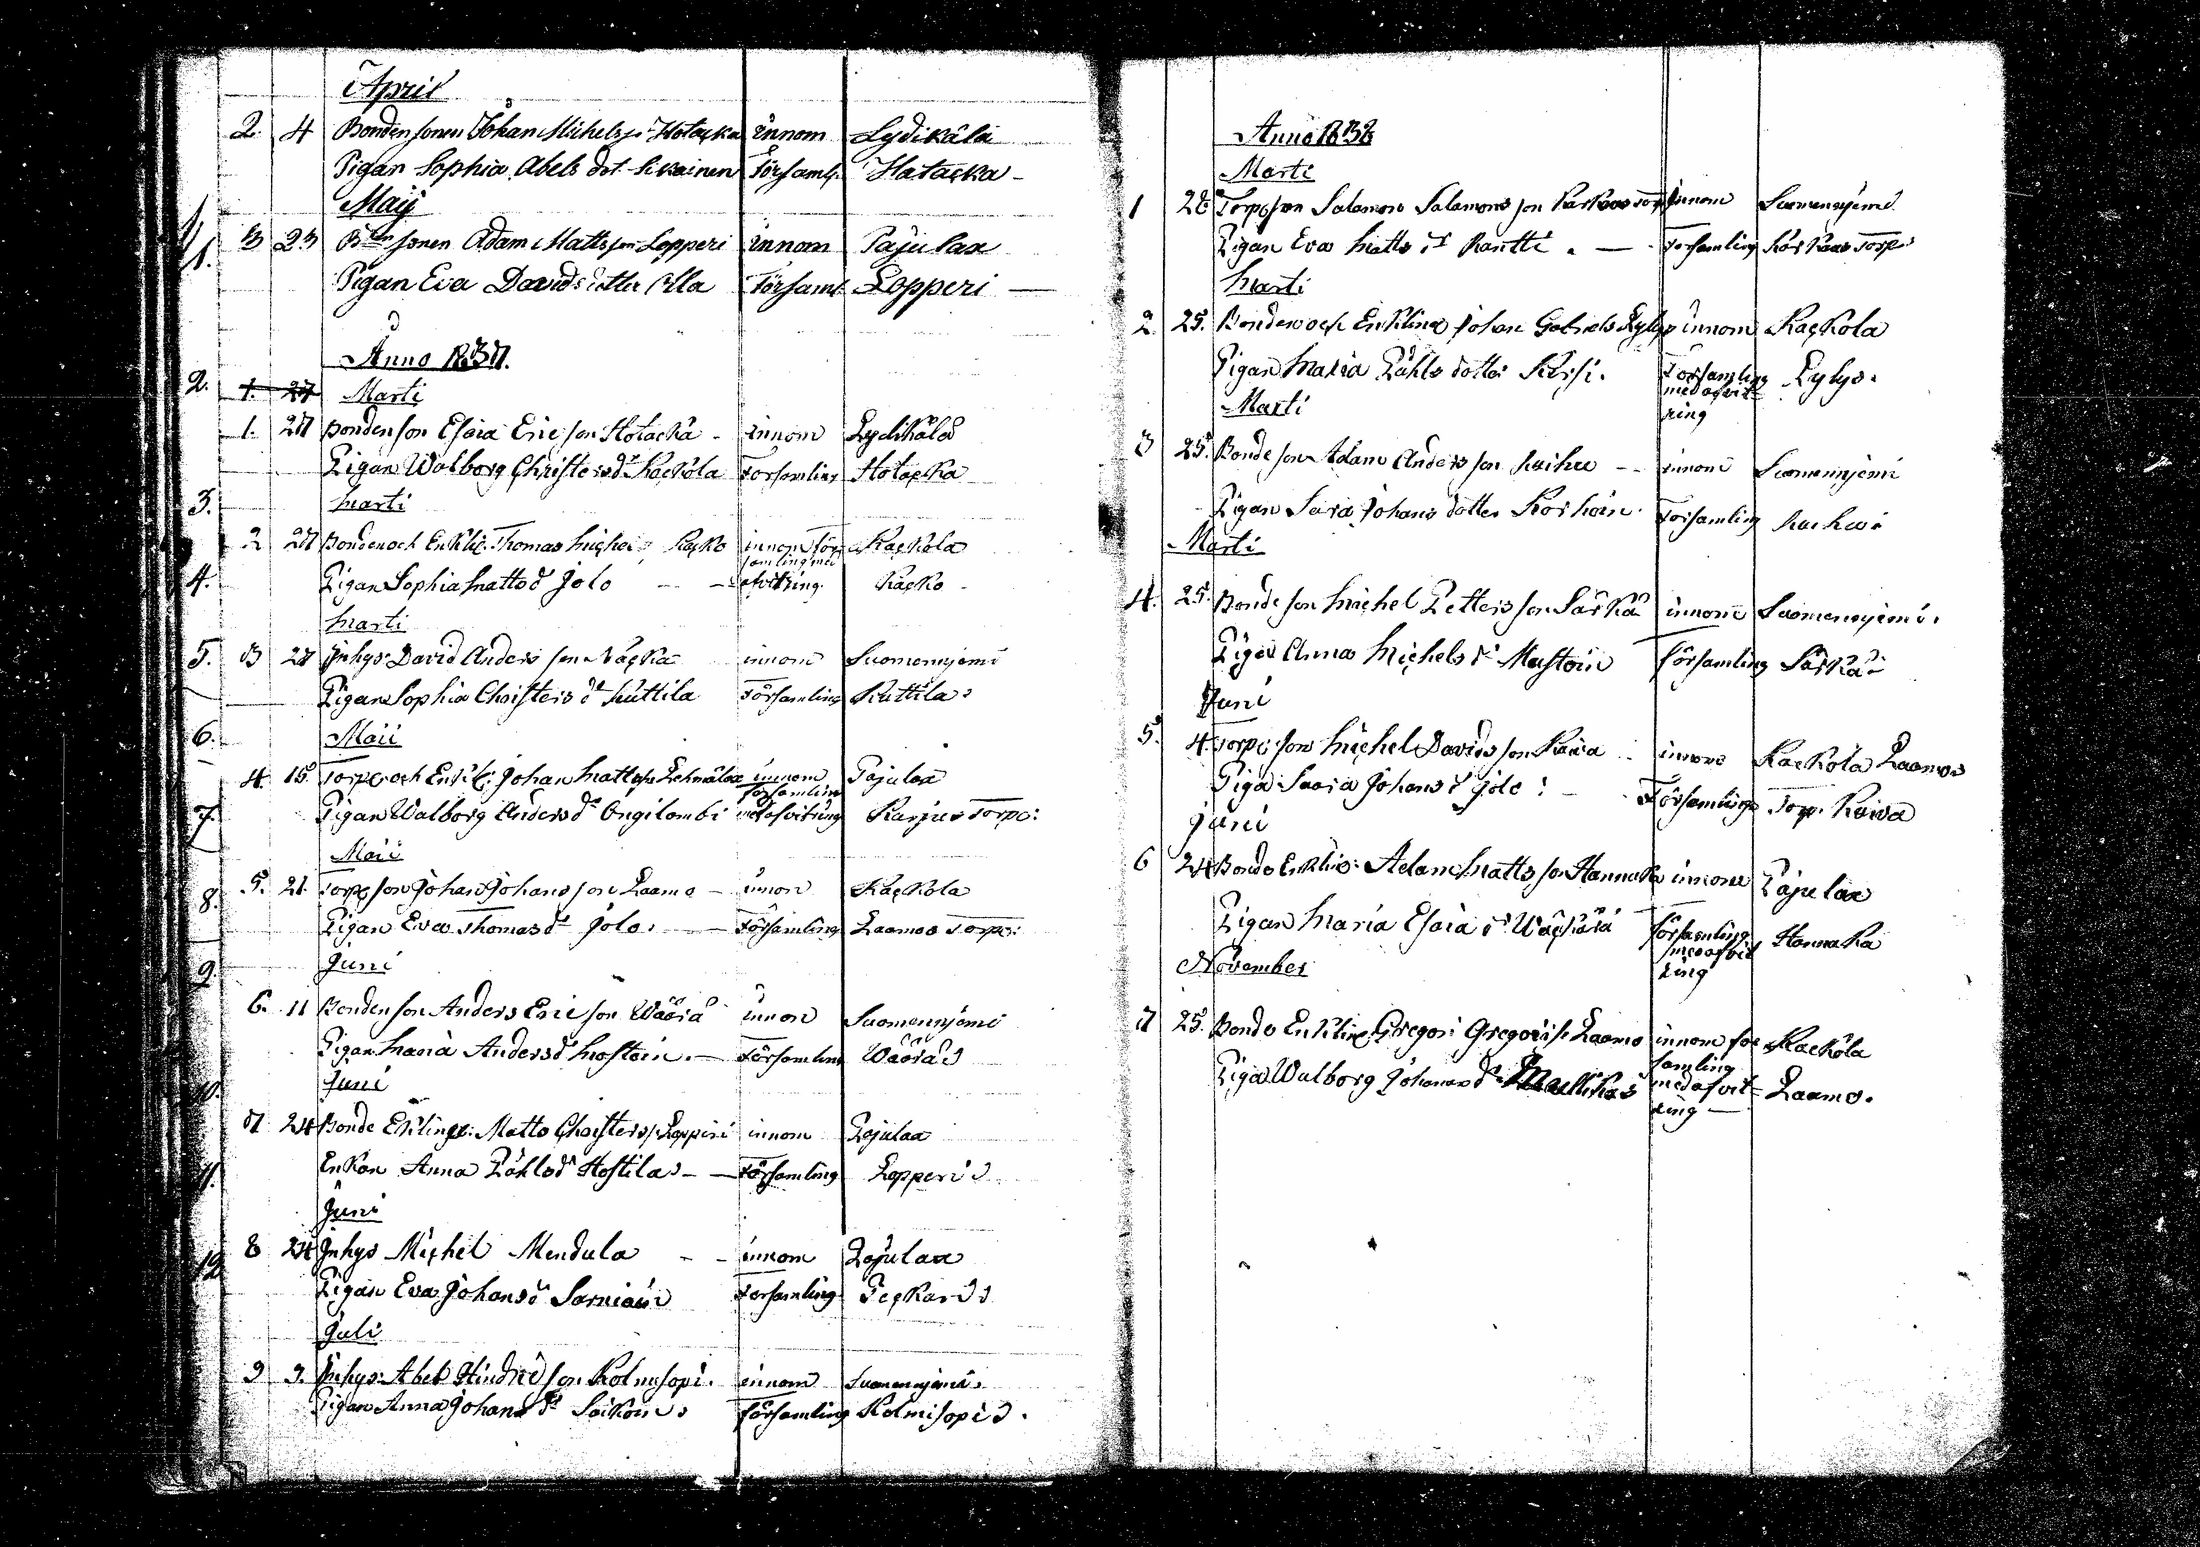 April
2. 4 Bondensonen Johan Michelss: Hotacka innom Lydikälä
Pigan Sophia Abels dot. Sikainen Församl. Hatacka -
Maij
3 23 B:densonen Adam Mattsson Lopperi innom Pajulax
1. Pigan Eva Davids dotter Olla Församl Lopperi —
Anno 1837.
2. 1. 27 Marti
1. 27 Bondenson Esaia Ericson Hotacka - innom Lydikälä
Pigan Walborg Christersdr Kackola Forsamling Hotacka
3. Marti
2 27 Bonden och Enkli: Thomas Michels Kacko innom för Kackola
samling med
4. Pigan Sophia Mattsdr Jolo — — afvitring. Kacko -
Marti
5. 3 27 Inhys: David Andersson innom Suomennjemi
Pigan Sophia Christers dr Kuttila Församling Kuttila
6. Maii
4. 15 Torp: och Enkl: Johan Mattss innom Pajulax
församling
7. Pigan Walborg Anders dr Ongilambi med afvitring Torp:
Maii
8. 5. 21. Torp: son Johan Johansson Laamo - innom Kackola
Pigan Eva Thomasdr Jolo. — Församling Laamos Torp:
9. Juni
6. 11 Bondenson Anders Ericson Wäärä innom Suomennjemi
Pigan Maria Andersdr Mostoin. — Församling Wäärä
10. Juni
7 24 Bonde Enkling: Matts Christerss: Lopperi innom Pajulax
11. Enkan Anna Påhlsdr Hostila - — Församling Lopperi
Juni
12 8 24 Inhys Michel Mendula - - innom Pajulax
Pigan Eva Johansdr Sarniain Forsamling
Juli
9 3. Inhys: Abel Hindricson Kolmisopi. innom Suomennjemi.
Pigan Anna Johans dr Saikoin Församling Kolmisopi
Anno 1838
Marti
1 26 Torp:son Salamon Salamonsson innom Suomennjemi
Pigan Eva Matts dr Rantti. — Forsamling Torp:
Marti
2. 25. Bonden och Enkling Johan Gabriels Lylys innom Kackola
Pigan Maria Påhls dotter Församling Lylys.
Marti
med afvit
ring
3 25. Bonde son Adam Andersson -- innom Suomennjemi
Pigan Sara Johans dotter Korhoin Forsamling
Marti
4. 25. Bonde son Michel Pettersson Särkä innom Suomennjemi.
Pigan Anna Michels dr Mustoin Församling Särkä
Juni
5. 4. Torp: son Michel Davidsson Kaiva innom Kackola Laamos
Piga Saara Johans dr Jolo: — Församling Torp. Kaiva
Juni
6 24 Bonde Enkling: Adam Mattsson Hannuka innom Pajulax
Pigan Maria Esaia dr Församling Hannuka
med afvit
ring
November
7 25. Bonde Enkling: Gregori Gregoriss: Laamo innom för Kackola
samling
Piga Walborg Johans dr med afvit= Laamo.
ring —